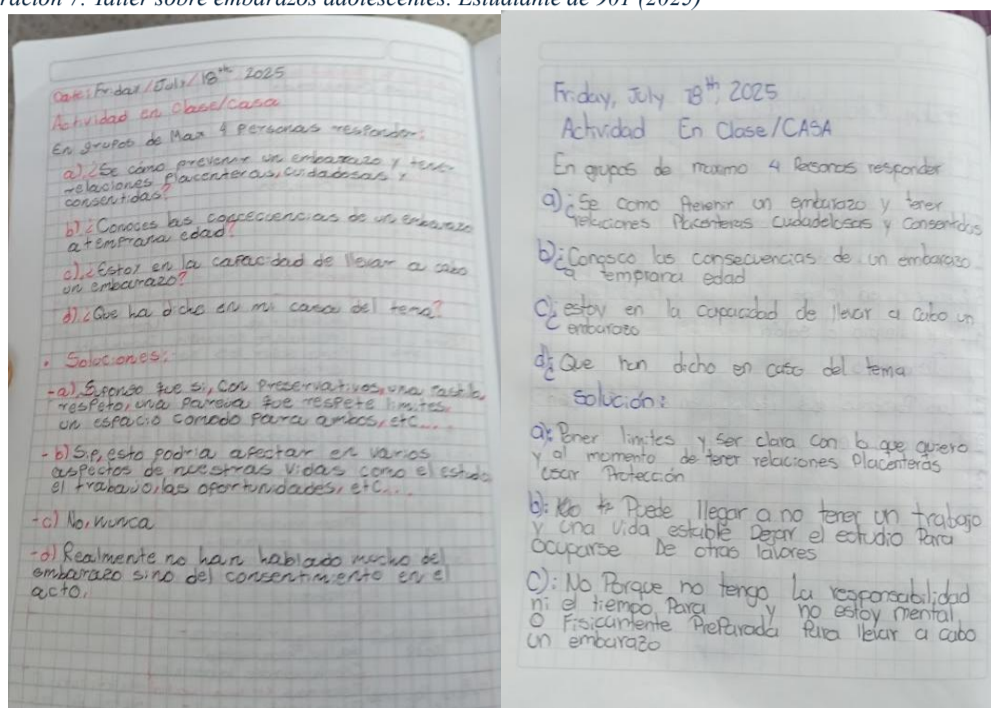 ración 7. Taller sobre embarazos adolescentes. Estudiante de 901 (2025)
Date: Friday/July/18th 2025
Actividad en clase/casa
En grupos de Max 4 personas responder:
a). ¿Se cómo prevenir un embarazo y tener
relaciones placenteras, cuidadosas y
consentidas?
b). ¿Conoces las consecuencias de un embarazo
a temprana edad?
c). ¿Estoy en la capacidad de llevar a cabo
un embarazo?
d). ¿Que ha dicho en mi casa del tema?
• Soluciones:
-a). Supongo que si, con preservativos, una pastilla,
respeto, una pareja que respete limites,
un espacio comodo para ambos, etc....
-b) Sip, esto podria afectar en varios
aspectos de nuestras vidas como el estudio
el trabajo, las oportunidades, etc....
-c) No, nunca
-d) Realmente no han hablado mucho del
embarazo sino del consentimiento en el
acto.
Friday, July 18th, 2025
Actividad En Clase/CASA
En grupos de maximo 4 Personas responder
a) ¿Se como Prevenir un embarazo y tener
relaciones Placenteras cuidadosas y Consentidas
b) ¿Congosco las consecuencias de un embarazo
a temprana edad
c) ¿estoy en la capacidad de llevar a cabo un
embarazo
d) ¿Que han dicho en casa del tema
Solución:
a): Poner limites y ser clara con lo que quiero
y al momento de tener relaciones Placenteras
usar Protección
b): Puede llegar a no tener un trabajo
y una vida estable Dejar el estudio Para
Ocuparse De otras labores
C): No Porque no tengo La responsabilidad
ni el tiempo Para y no estoy mental
O Fisicamente Preparada Para llevar a cabo
un embarazo